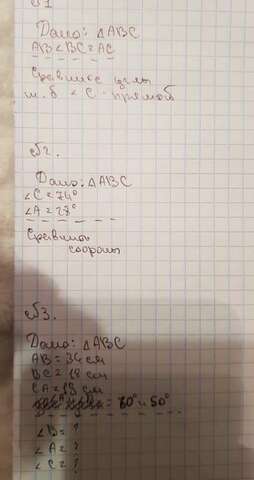 №1
Дано: △ABC
AB<BC<AC
Сравнить углы
м.б ∠C - прямой
№2.
Дано: △ABC
∠C=74°
∠A=28°
Сравнить
стороны
№3.
Дано: △ABC
AB=34 см
BC=18 см
CA=19 см
= 80° и 50°
∠B=?
∠A=?
∠C=?